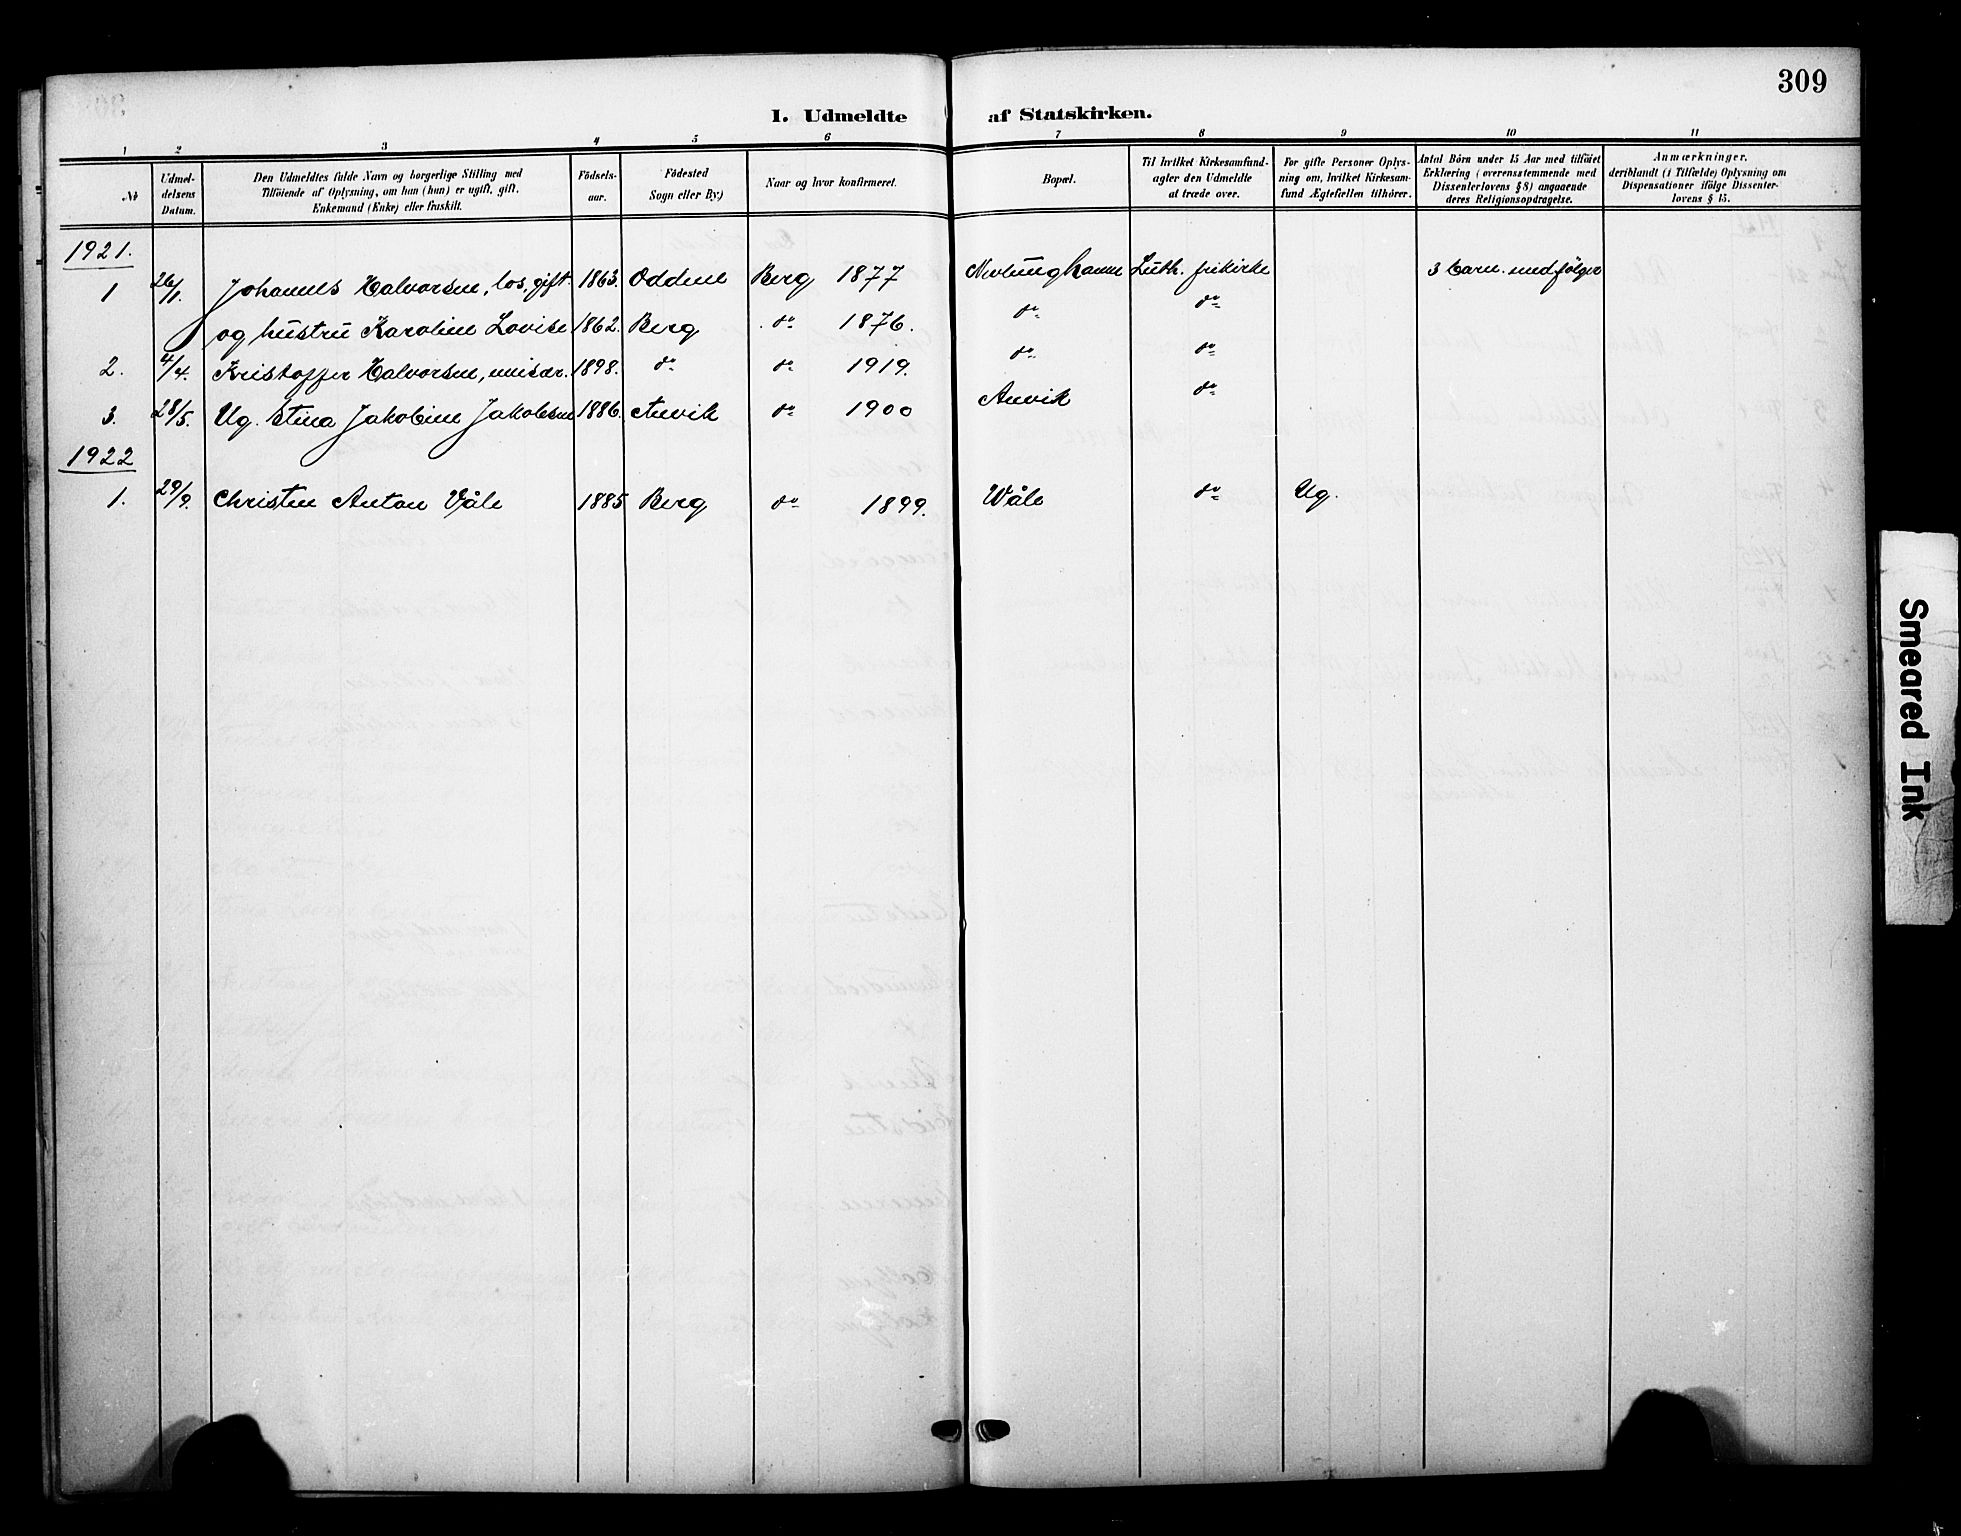 309
I. Udmeldte af Statskirken.
1 2 3 4 5 6 7 8 9 10 11
No
Udmel-
delsens
Datum.
Den Udmeldtes fulde Navn og borgerlige Stilling med
Tilföiende af Oplysning, om han (hun) er ugift, gift,
Enkemand (Enke) eller fraskilt.
Födsels-
aar.
Födested
Sogn eller By)
Naar og hvor konfirmeret.
Bopæl.
Til hvilket Kirkesamfund-
agter den Udmeldte
at træde over.
For gifte Personer Oplys-
ning om, hvilket Kirkesam-
fund Ægtefællen tilhörer.
Antal Börn under 15 Aar med tilföiet
Erklæring (overensstemmende med
Dissenterlovens § 8) angaaende
deres Religionsopdragelse.
Anmærkninger,
deriblandt (i Tilfælde) Oplysning om
Dispensationer ifölge Dissenter-
lovens § 15.
1921.
1 26/1. Johannes Halvorsen, los, gift. 1863. Oddene Berg 1877 Nevlunghavn Luth. frikirke 3 barn medfølger
og hustru Karoline Lovise 1862. Berg do 1876. do do
2. 4/4. Kristoffer Halvorsen, 1898. do do 1919. do do
3. 28/5. Ug. Stina Jakobine Jakobsen 1886. Anvik do 1900 Anvik do
1922
1. 29/9. Christen Anton Våle 1885 Berg do 1899. Våle do Ug.
Smeared Ink